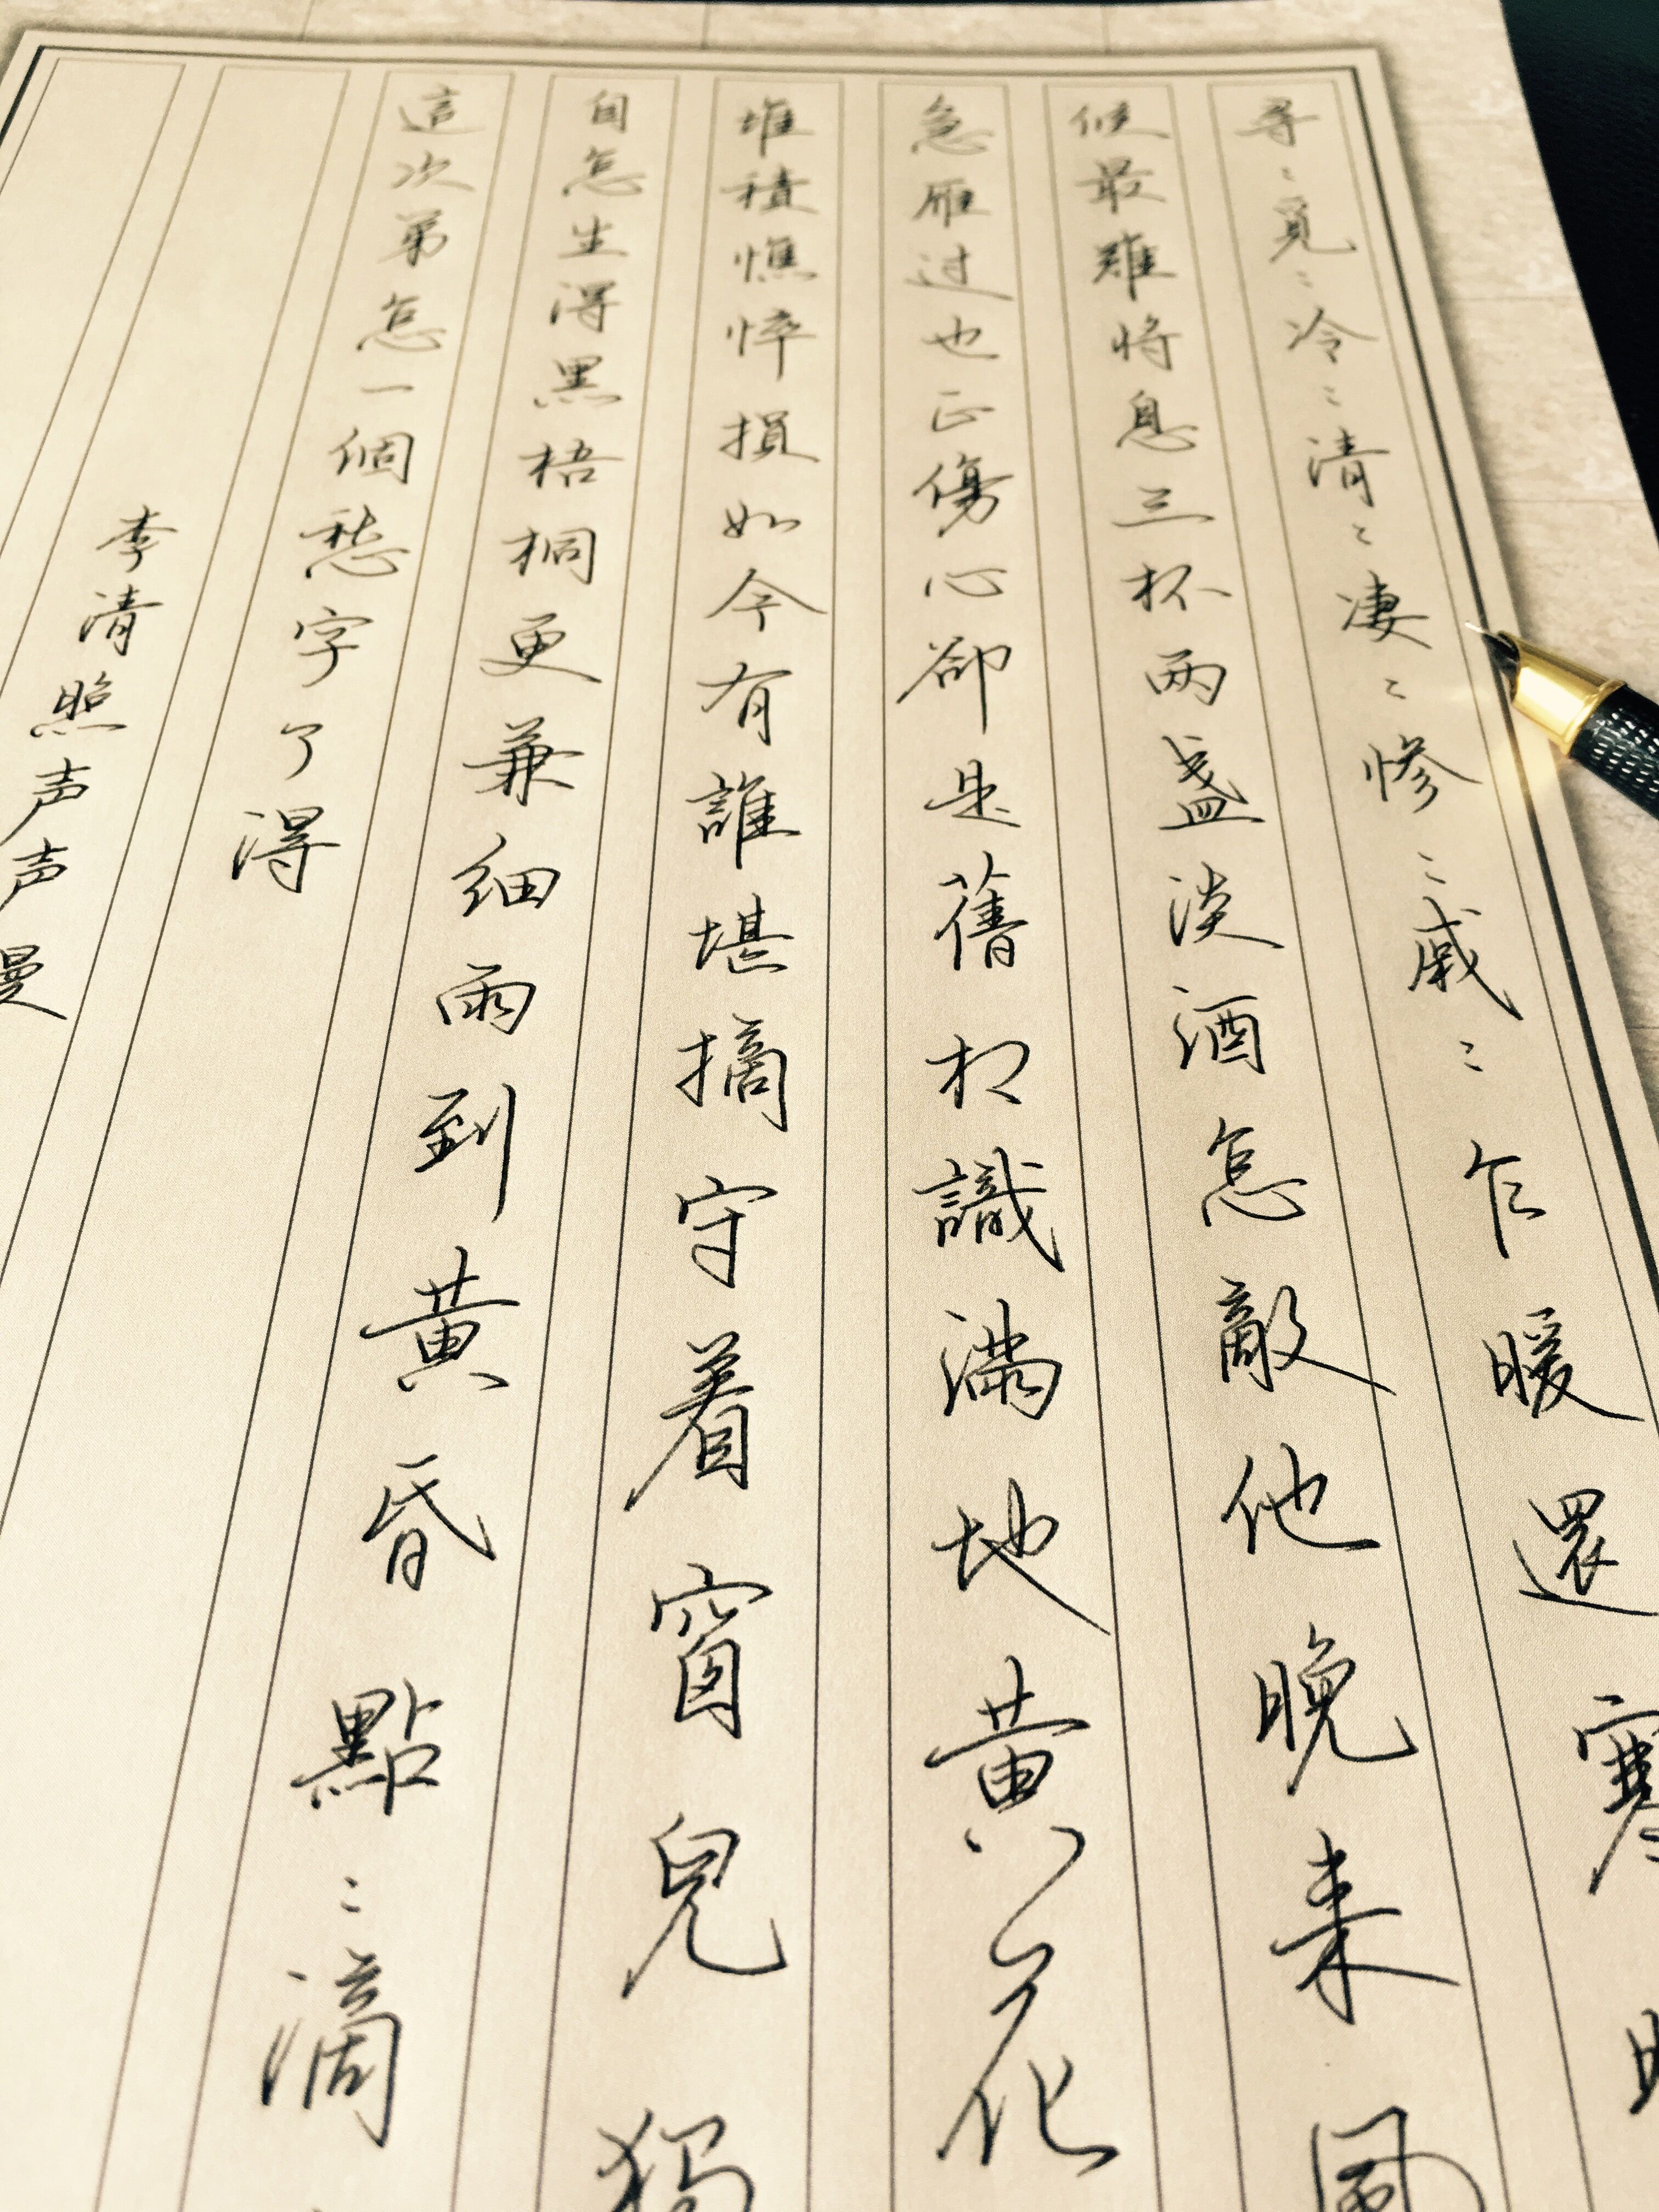 尋〻覓〻冷〻清〻凄〻惨〻戚〻乍暖還寒時
候最難将息三杯两盏淡酒怎敵他晚来風
急雁过也正傷心卻是舊相識滿地黄花
堆積憔悴損如今有誰堪摘守着窗兒獨
自怎生得黑梧桐更兼细雨到黄昏點〻滴
這次第怎一個愁字了得
李清照声声慢